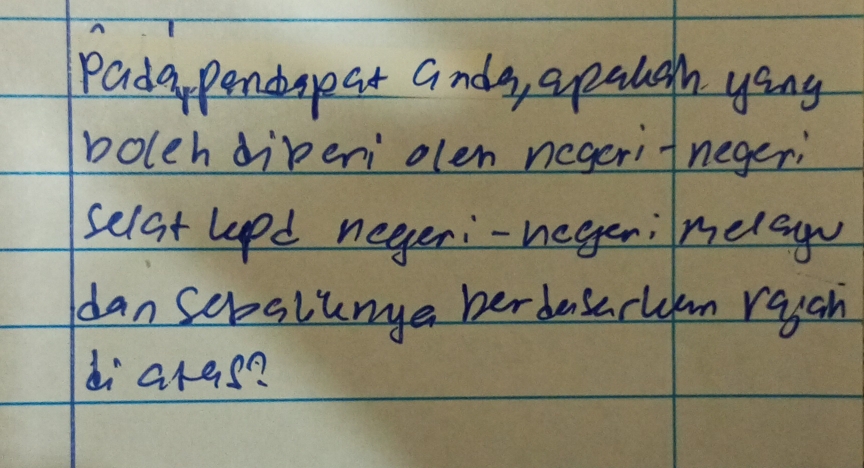 Pada pendapat anda, apakah yang
boleh diberi oleh negeri-negeri
selat kpd negeri-negeri melayu
dan sebaliknya berdasarkan rajah
di atas?